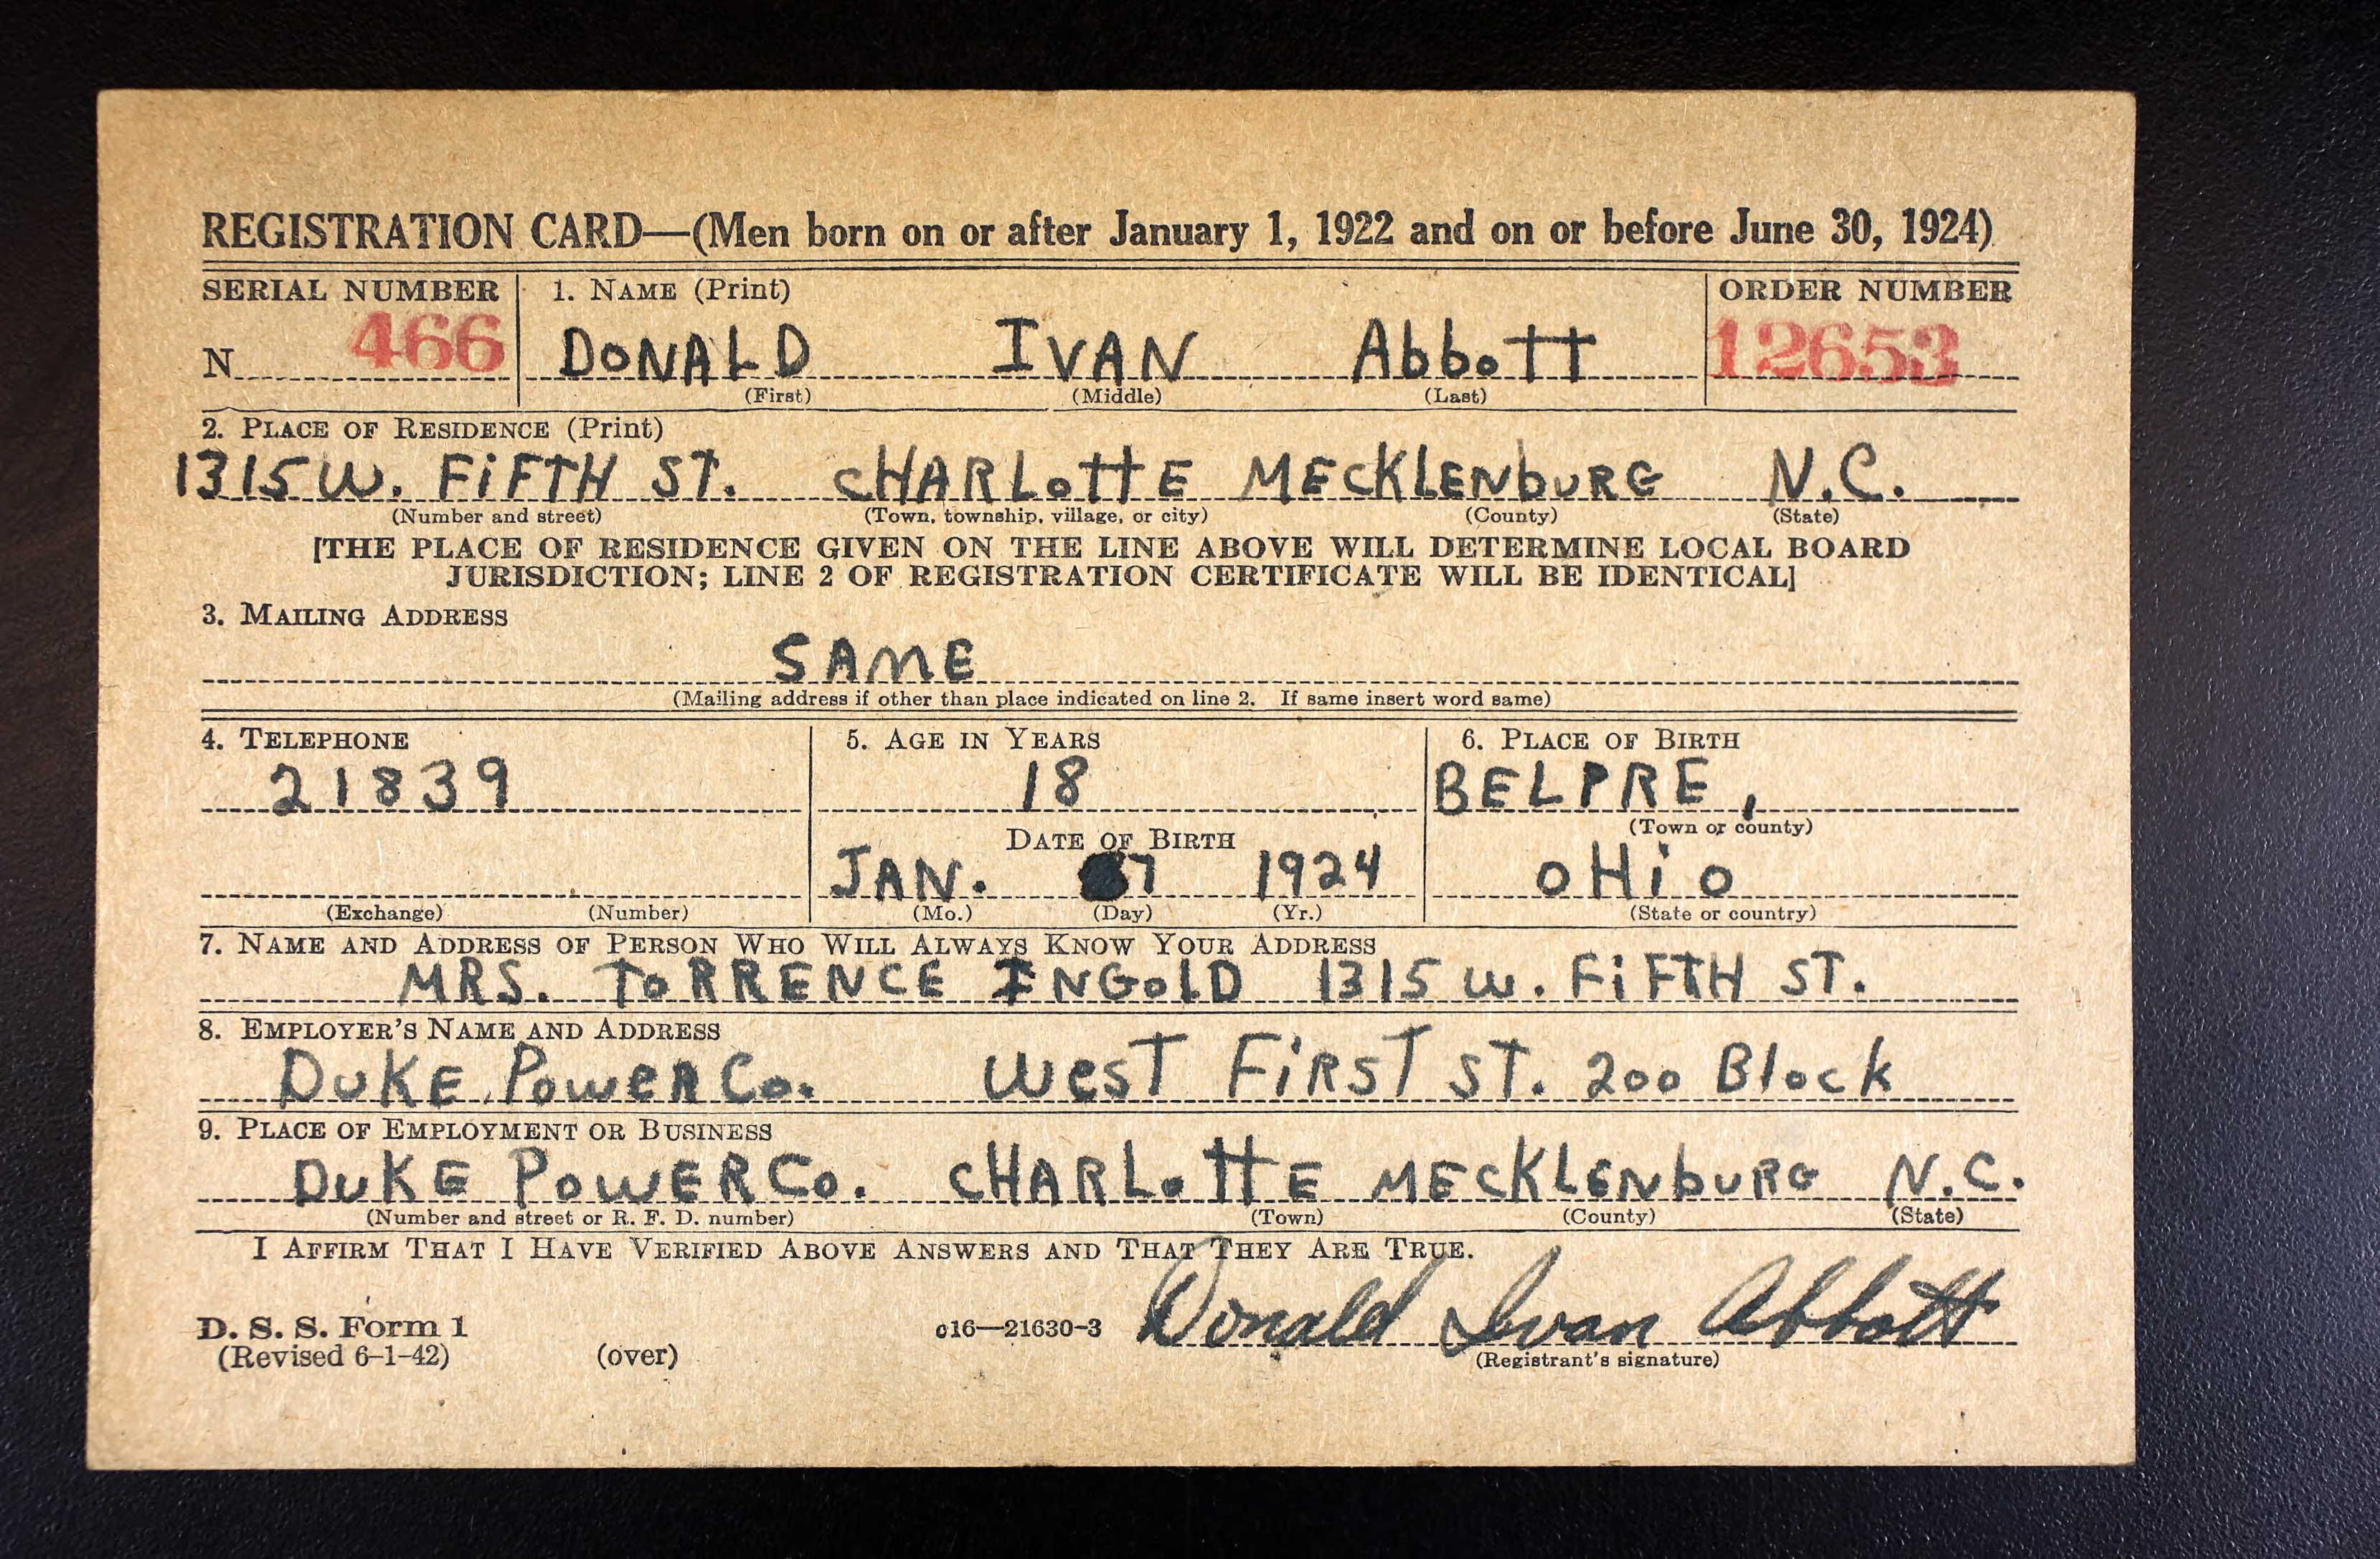 REGISTRATION CARD—(Men born on or after January 1, 1922 and on or before June 30, 1924)
SERIAL NUMBER 1. NAME (Print) ORDER NUMBER
N 466 DONALD IVAN Abbott 12653
(First) (Middle) (Last)
2. PLACE OF RESIDENCE (Print)
1315 W. FiFTH ST. CHARLottE MECKLENbURG N.C.
(Number and street) (Town, township, village, or city) (County) (State)
[THE PLACE OF RESIDENCE GIVEN ON THE LINE ABOVE WILL DETERMINE LOCAL BOARD
JURISDICTION; LINE 2 OF REGISTRATION CERTIFICATE WILL BE IDENTICAL]
3. MAILING ADDRESS
SAME
(Mailing address if other than place indicated on line 2. If same insert word same)
4. TELEPHONE 5. AGE IN YEARS 6. PLACE OF BIRTH
21839 18 BELPRE,
(Town or county)
DATE OF BIRTH
JAN. 7 1924 OHiO
(Exchange) (Number) (Mo.) (Day) (Yr.) (State or country)
7. NAME AND ADDRESS OF PERSON WHO WILL ALWAYS KNOW YOUR ADDRESS
MRS. ToRRENCE INGolD 1315 W. FiFTH ST.
8. EMPLOYER'S NAME AND ADDRESS
DUKE PoweR Co. WesT FiRST ST. 200 Block
9. PLACE OF EMPLOYMENT OR BUSINESS
DUKE PoWER Co. CHARLottE MECKLENbURG N.C.
(Number and street or R. F. D. number) (Town) (County) (State)
I AFFIRM THAT I HAVE VERIFIED ABOVE ANSWERS AND THAT THEY ARE TRUE.
D. S. S. Form 1 c16—21630-3 Donald Ivan Abbott
(Revised 6-1-42) (over) (Registrant's signature)